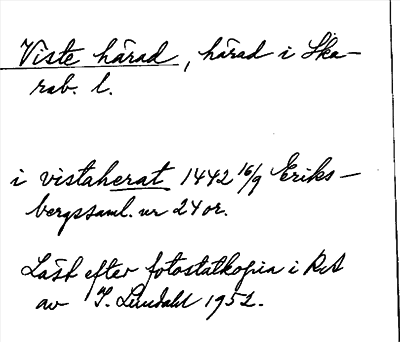 Viste härad, härad i Ska-
rab. l.
i vistaherat 1442 16/9 Eriks-
bergssaml. nr 24 or.
Läst efter fotostatkopia i RA
av I. Lundahl 1952.